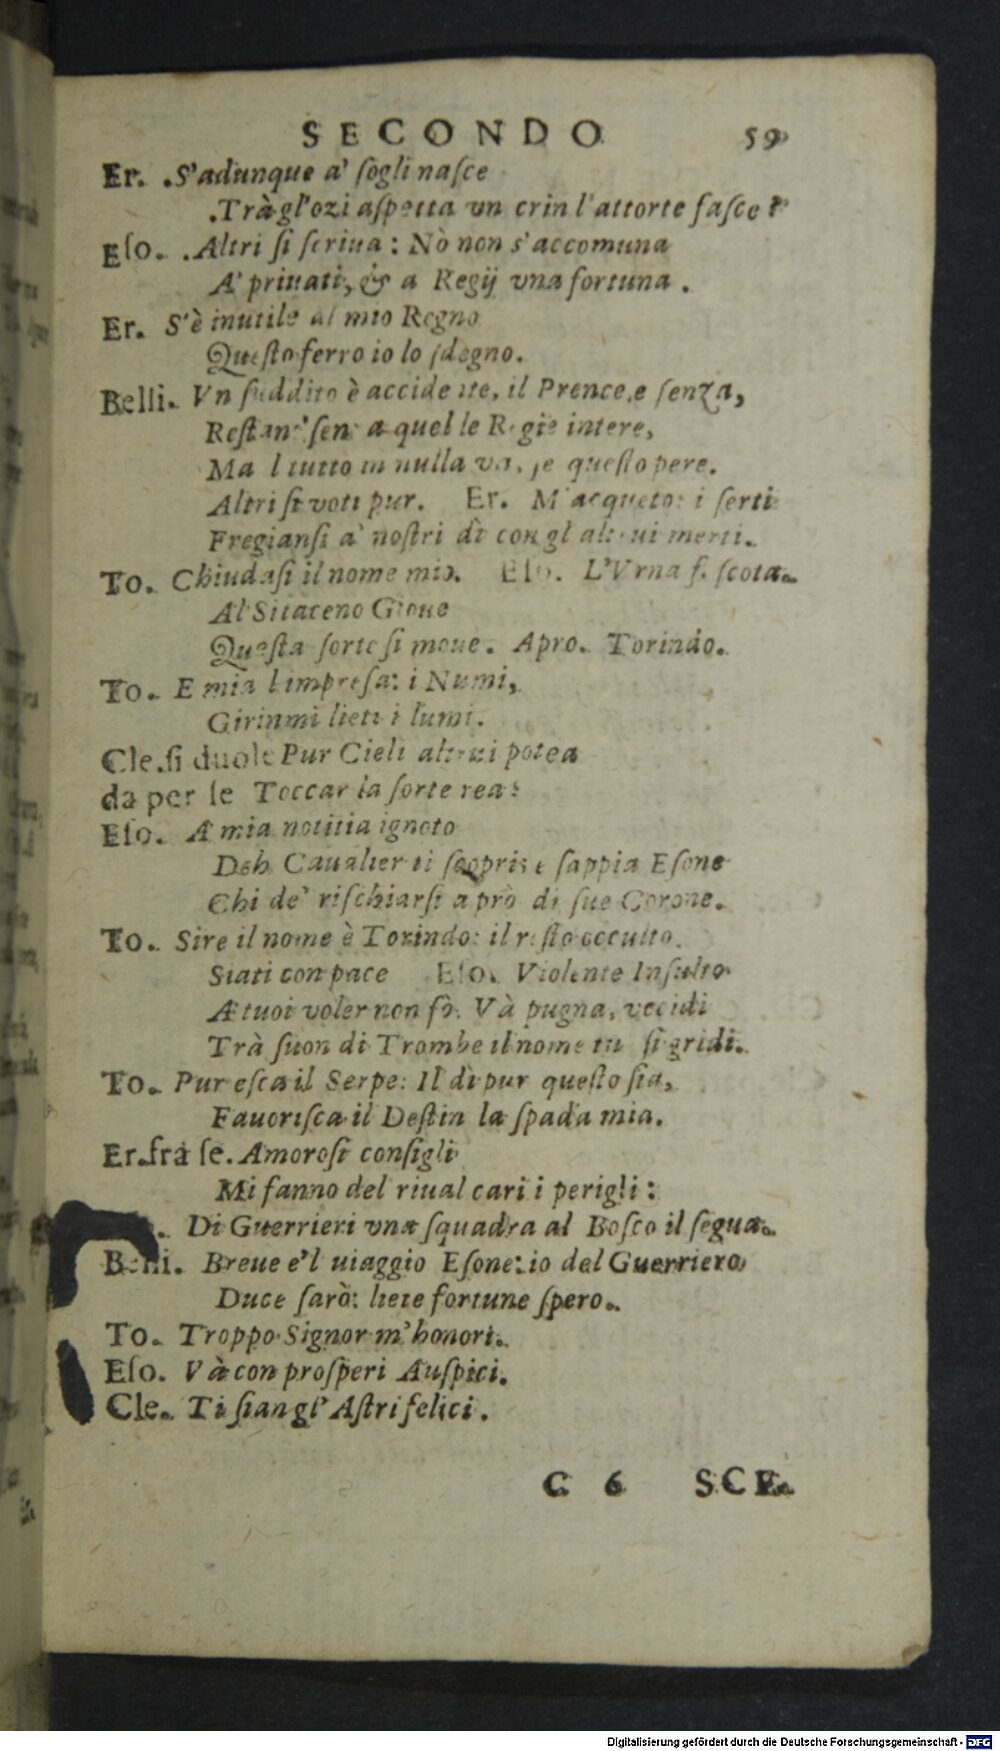 SECONDO 59
Er. S'adunque a' ſogli naſce
Trà gl'ozi aſpetta vn crin l'attorte faſce?
Eſo. Altri ſi ſcriua: Nò non s'accomuna
A' priuati, & a Regij vna fortuna.
Er. S'è inutile al mio Regno
Queſto ferro io lo ſdegno.
Belli. Vn ſuddito è accidente, il Prence e ſenza,
Reſtan' ſen a quelle Regie intere,
Ma l tutto in nulla va, ſe queſto pere.
Altri ſi voti pur. Er. M'acqueto: i ſerti
Fregianſi a' noſtri dì con gl altrui merti.
To. Chiudaſi il nome mio. Eſo. L'Vrna ſi ſcota.
Al Sitaceno Gioue
Queſta ſorte ſi moue. Apro. Torindo.
To. E mia l impreſa: i Numi,
Girinmi lieti i lumi.
Cle. ſi duole Pur Cieli altrui potea
da per ſe Toccar la ſorte rea:
Eſo. A mia notitia ignoto
Deh Caualier ti ſcopri: e ſappia Eſone
Chi de' riſchiarſi a prò di ſue Corone.
To. Sire il nome è Torindo: il reſto occulto
Siati con pace Eſo. Violente Inſulto
A tuoi voler non fò. Và pugna, vccidi
Trà ſuon di Trombe il nome tu ſi gridi.
To. Pur eſca il Serpe: Il dì pur queſto ſia,
Fauoriſca il Deſtin la ſpada mia.
Er. frà ſe. Amoroſi conſigli
Mi fanno del riual cari i perigli:
. Di Guerrieri vna ſquadra al Boſco il ſegua.
Belli. Breue e'l uiaggio Eſone: io del Guerriero
Duce ſarò: liete fortune ſpero.
To. Troppo Signor m'honori.
Eſo. Và con proſperi Auſpici.
Cle. Ti ſian gl' Aſtri felici.
C 6 SCE.
Digitalisierung gefördert durch die Deutsche Forschungsgemeinschaft - DFG